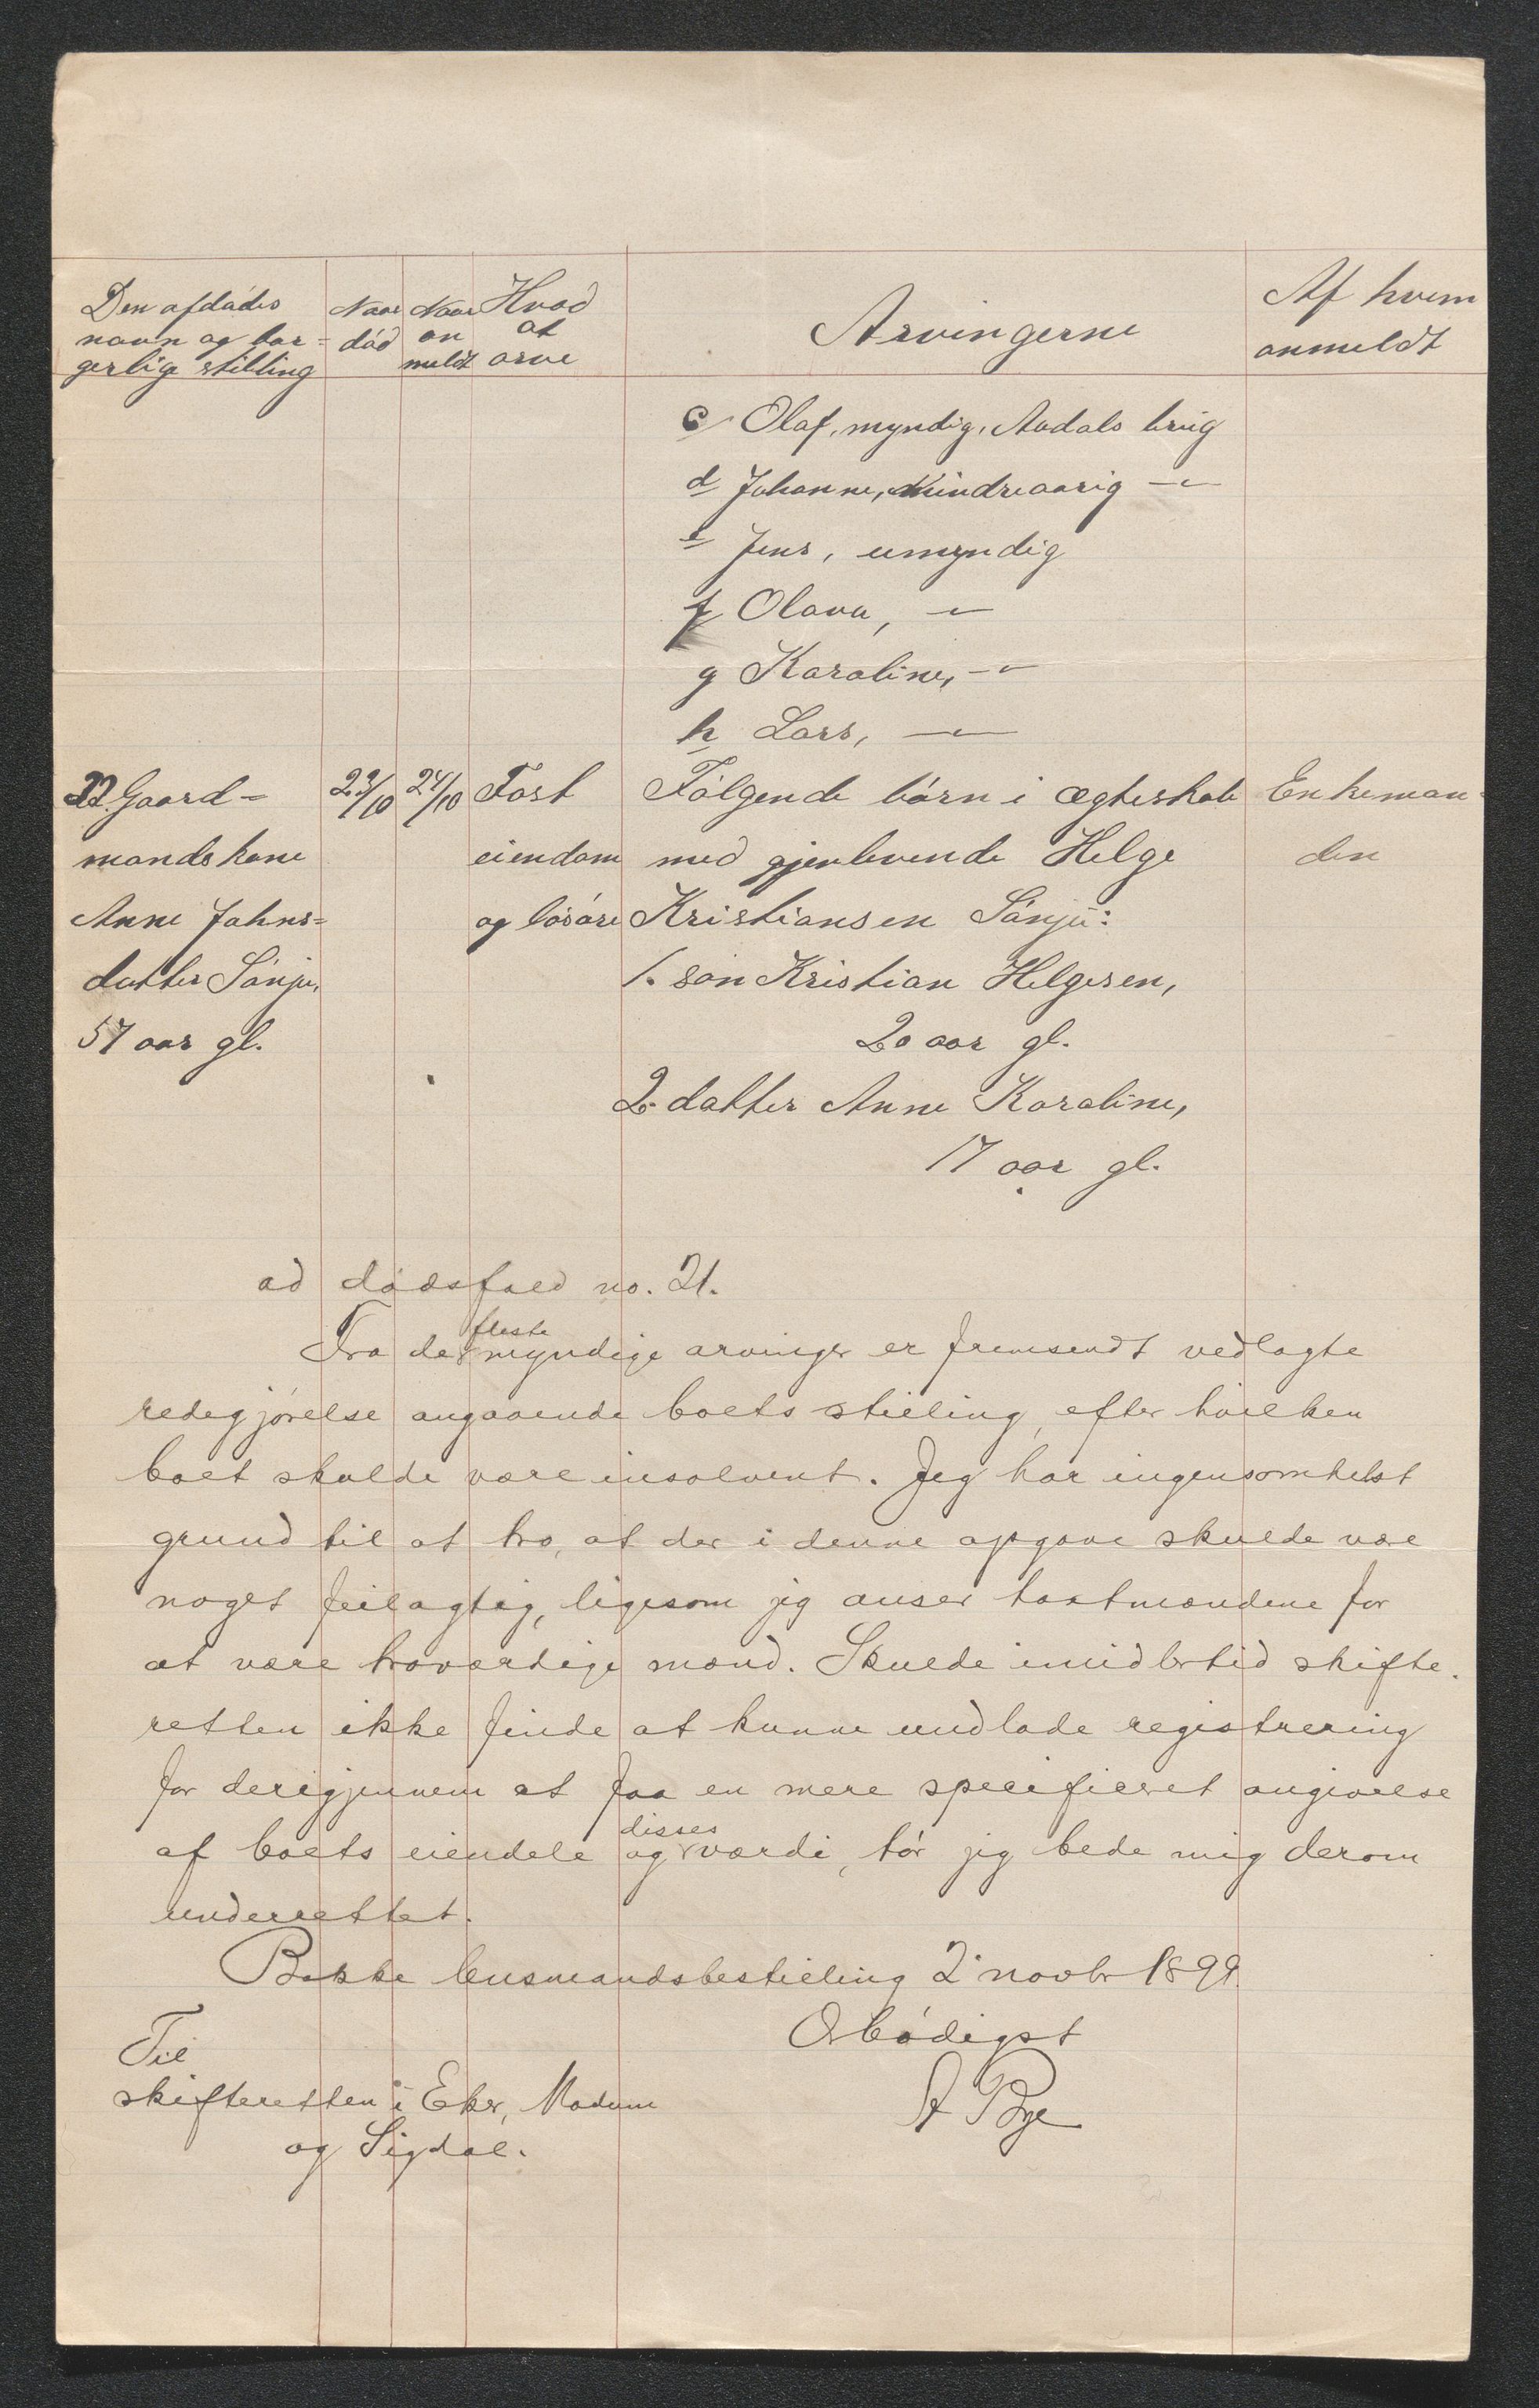 Den afdødes
navn og bor-
gerlige stilling
Naar
død
Naar
an
meldt
Hvad
at
arve
Arvingerne
Af hvem
anmeldt
c/ Olaf, myndig, Aadals brug
d Johanne, mindreaarig —"—
e Jens, umyndig
f Olava, —"—
g Karoline, —"—
h Lars, —"—
22. Gaard- 23/10 24/10 Fast Følgende børn i ægteskab Enkeman-
mandskone eiendom med gjenlevende Helge den
Anne Johns= og løsøre Kristiansen Sønju:
datter Sønju, 1. søn Kristian Helgesen,
57 aar gl. 20 aar gl.
2. datter Anne Karoline,
17 aar gl.
ad dødsfald no. 21.
Fra de fleste myndige arvinger er fremsendt vedlagte
redegjørelse angaaende boets stilling, efter hvilken
boet skulde være insolvent. Jeg har ingensomhelst
grund til at tro, at der i denne opgave skulde være
noget feilagtig, ligesom jeg anser taxtmændene for
at være troværdige mænd. Skulde imidlertid skifte-
retten ikke finde at kunne undlade registrering
for derigjennem at faa en mere specifieret angivelse
af boets eiendele og disses værdi, tør jeg bede mig derom
underrettet.
Bakke lensmandsbestilling 2 novbr 1899.
Ærbødigst
A Bye
Til
skifteretten i Eker, Modum
og Sigdal.